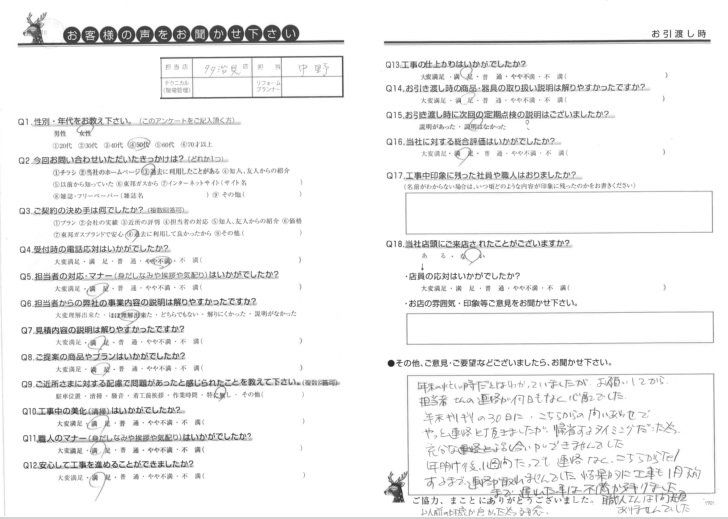 お客様の声をお聞かせ下さい
担当店 多治見店 担当 中野
テクニカル(現場監理) リフォームプランナー
Q1.性別・年代をお教え下さい。(このアンケートをご記入頂く方)
男性 女性
①20代 ②30代 ③40代 ④50代 ⑤60代 ⑥70才以上
Q2.今回お問い合わせいただいたきっかけは?(どれか1つ)
①チラシ ②当社のホームページ ③過去に利用したことがある ④知人、友人からの紹介
⑤以前から知っていた ⑥東邦ガスから ⑦インターネットサイト(サイト名 )
⑧雑誌・フリーペーパー(雑誌名 ) ⑨その他( )
Q3.ご契約の決め手は何でしたか?(複数回答可)
①プラン ②会社の実績 ③近所の評判 ④担当者の対応 ⑤知人、友人からの紹介 ⑥価格
⑦東邦ガスブランドで安心 ⑧過去に利用して良かったから ⑨その他( )
Q4.受付時の電話応対はいかがでしたか?
大変満足・満 足・普 通・やや不満・不 満( )
Q5.担当者の対応・マナー(身だしなみや挨拶や気配り)はいかがでしたか?
大変満足・満 足・普 通・やや不満・不 満( )
Q6.担当者からの弊社の事業内容の説明は解りやすかったですか?
大変理解出来た・ほぼ理解出来た・どちらでもない・解りにくかった・説明がなかった
Q7.見積内容の説明は解りやすかったですか?
大変満足・満 足・普 通・やや不満・不 満( )
Q8.ご提案の商品やプランはいかがでしたか?
大変満足・満 足・普 通・やや不満・不 満( )
Q9.ご近所さまに対する配慮で問題があったと感じられたことを教えて下さい。(複数回答可)
駐車位置・清掃・騒音・着工前挨拶・作業時間・特に無し・その他( )
Q10.工事中の美化(清掃)はいかがでしたか?
大変満足・満 足・普 通・やや不満・不 満( )
Q11.職人のマナー(身だしなみや挨拶や気配り)はいかがでしたか?
大変満足・満 足・普 通・やや不満・不 満( )
Q12.安心して工事を進めることができましたか?
大変満足・満 足・普 通・やや不満・不 満( )
お引渡し時
Q13.工事の仕上がりはいかがでしたか?
大変満足・満 足・普 通・やや不満・不 満( )
Q14.お引き渡し時の商品・器具の取り扱い説明は解りやすかったですか?
大変満足・満 足・普 通・やや不満・不 満( )
Q15.お引き渡し時に次回の定期点検の説明はございましたか?
説明があった・説明はなかった ?
Q16.当社に対する総合評価はいかがでしたか?
大変満足・満 足・普 通・やや不満・不 満( )
Q17.工事中印象に残った社員や職人はおりましたか?
(名前がわからない場合は、いつ頃どのような内容が印象に残ったのかをお書きください)
Q18.当社店頭にご来店されたことがございますか?
ある・ない
↓
・店員の応対はいかがでしたか?
大変満足・満 足・普 通・やや不満・不 満( )
・お店の雰囲気・印象等ご意見をお聞かせ下さい。
●その他、ご意見・ご要望などございましたら、お聞かせ下さい。
年末の忙しい時だとはわかっていましたが お願いしてから
担当者さんの連絡が何日もなく、心配でした
年末ギリギリの30日に、こちらからの問い合わせで
やっと連絡を頂きましたが、帰省するタイミングだった為、
充分な話し合いができませんでした
年明け後、1週間たっても連絡なく、こちらからTEL
するまで、連絡が取れませんでした 結果的に工事も1月
ご協力、まことにありがとうございました。 職人さんは問題
ありませんでした